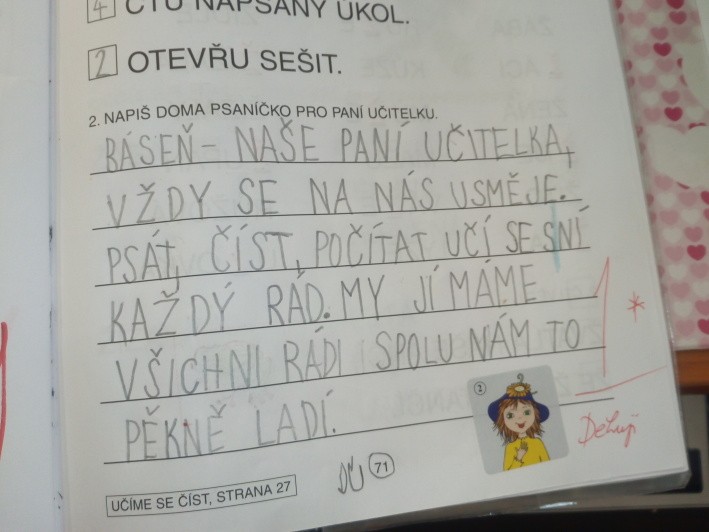 4 ČTU NAPSANÝ ÚKOL.
2 OTEVŘU SEŠIT.
2. NAPIŠ DOMA PSANÍČKO PRO PANÍ UČITELKU.
BÁSEŇ - NAŠE PANÍ UČITELKA,
VŽDY SE NA NÁS USMĚJE.
PSÁT, ČÍST, POČÍTAT UČÍ SE S NÍ
KAŽDÝ RÁD. MY JÍ MÁME
VŠICHNI RÁDI SPOLU NÁM TO
PĚKNĚ LADÍ.
2
Děkuji
DÚ 71
UČÍME SE ČÍST, STRANA 27